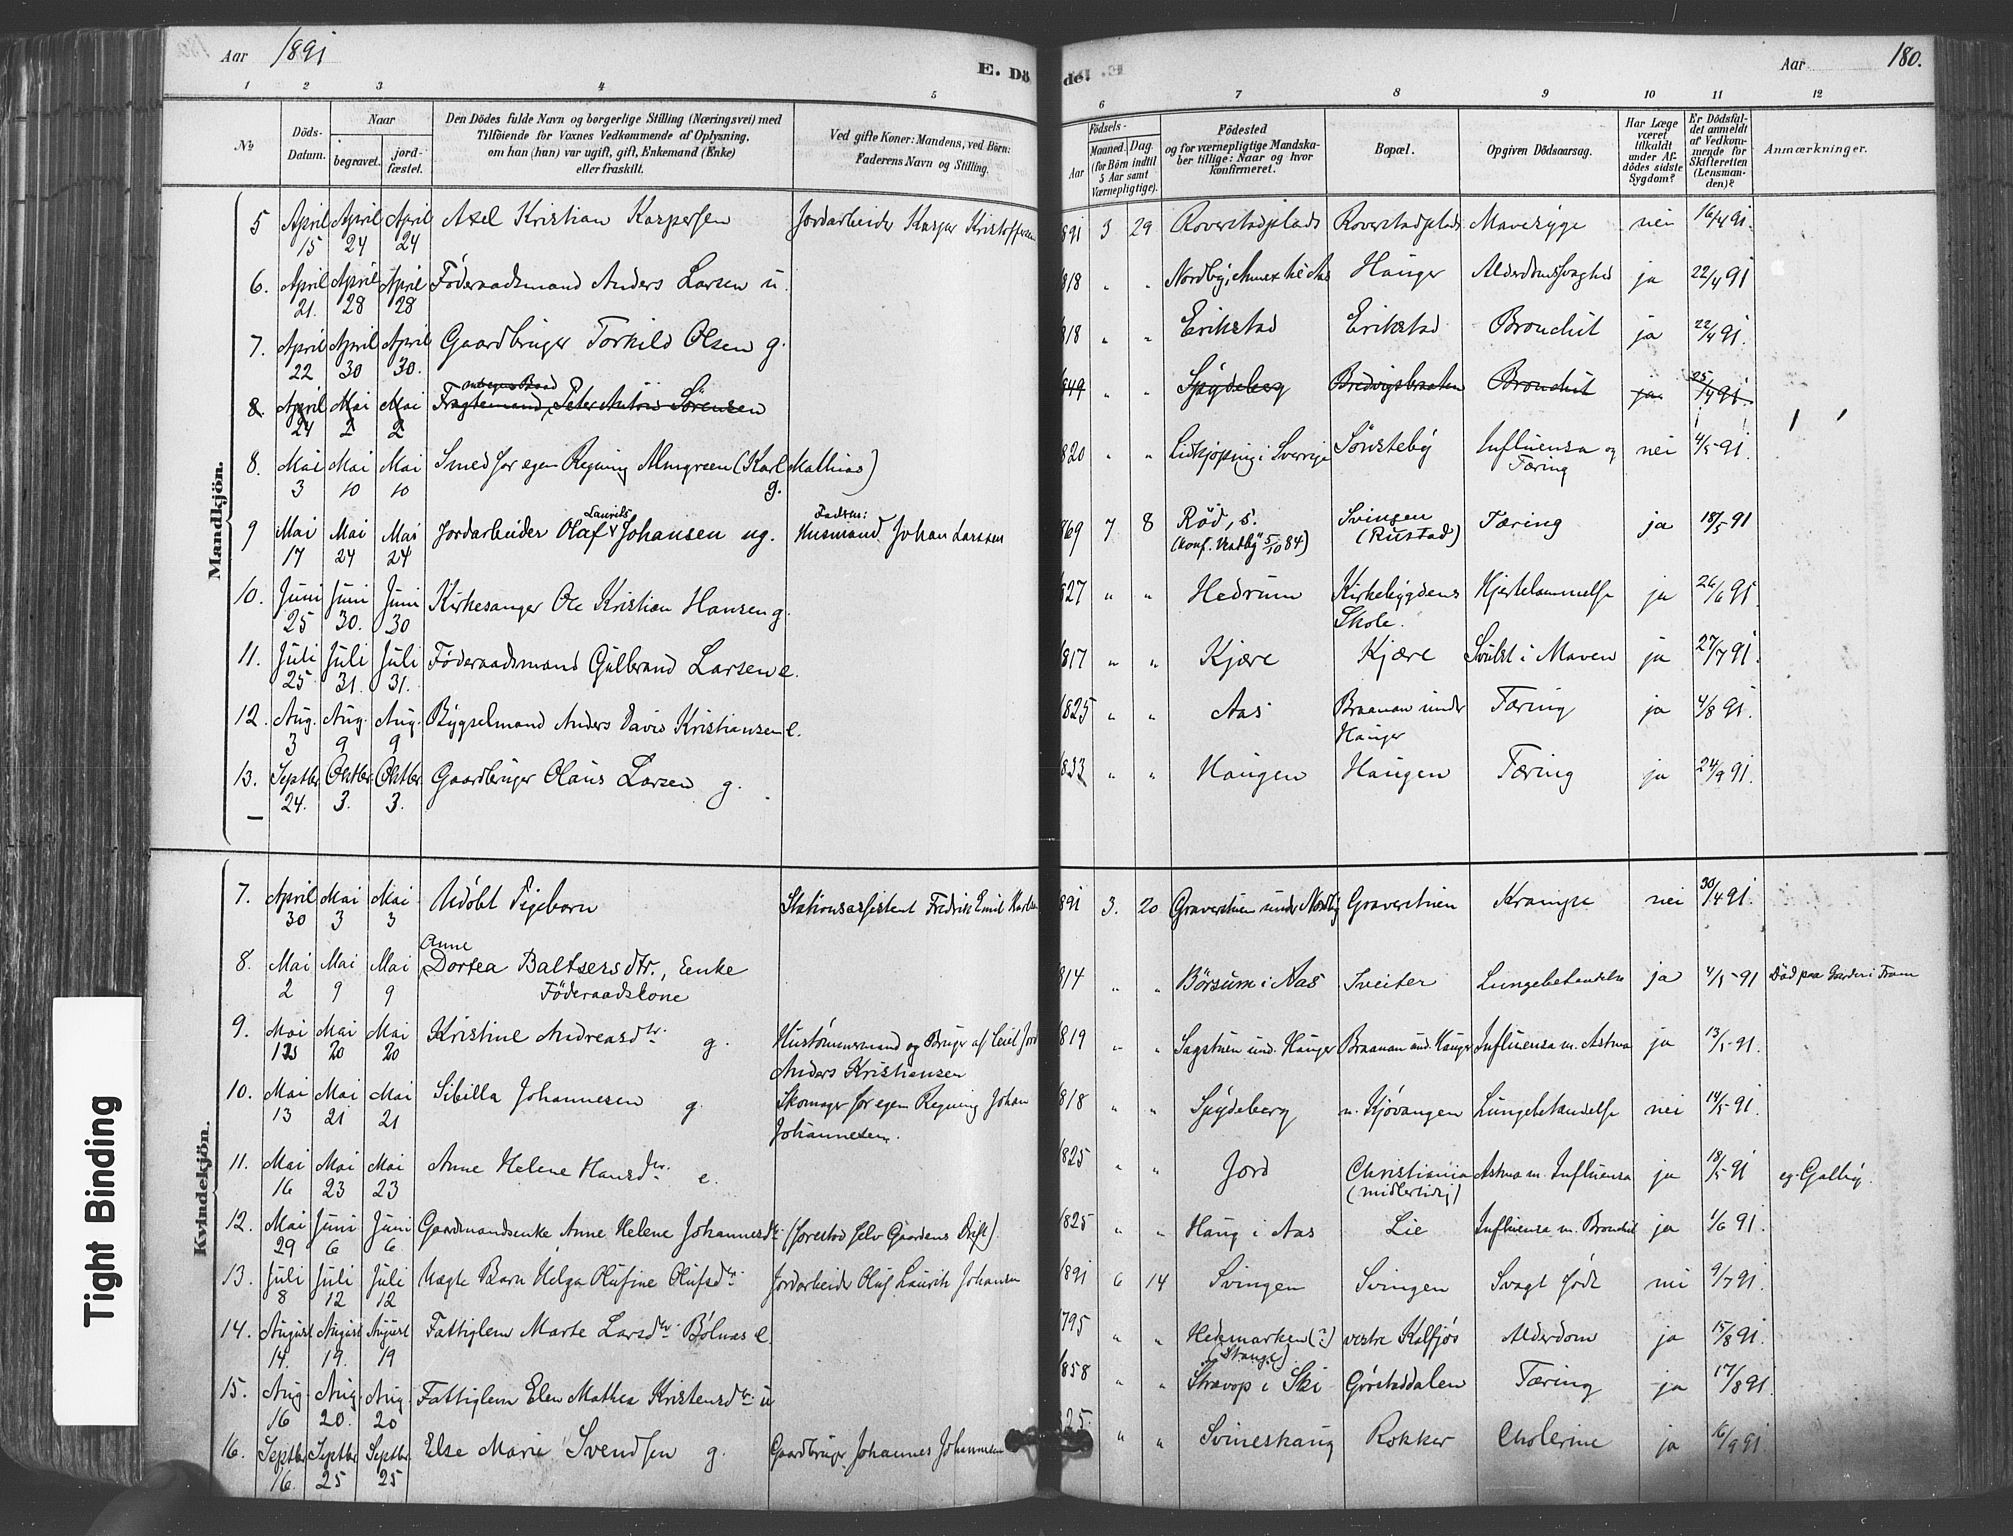 Aar 1891
E. Dö
de. E.
Aar
180.
1 2 3 4 5 6 7 8 9 10 11 12
No
Döds-Datum.
Naar
begravet.
jord-fæstet.
Den Dödes fulde Navn og borgerlige Stilling (Næringsvei) med
Tilföiende for Voxnes Vedkommende af Oplysning,
om han (hun) var ugift, gift, Enkemand (Enke)
eller fraskilt.
Ved gifte Koner: Mandens, ved Börn:
Faderens Navn og Stilling.
Födsels-
Aar
Maaned. Dag.
(for Börn indtil
5 Aar samt
Værnepligtige).
Födested
og for værnepligtige Mandska-
ber tillige: Naar og hvor
konfirmeret.
Bopæl.
Opgiven Dödsaarsag.
Har Læge
været
tilkaldt
under Af-
dödes sidste
Sygdom?
Er Dödsfal-
det anmeldt
af Vedkom-
mende for
Skifteretten
(Lensman-
den)?
Anmærkninger.
Mandkjön.
5 April 15 April 24 April 24 Axel Kristian Kaspersen Jordarbeider Kasper Kristoffersen 891 3 29 Roverstadplads Roverstadplads Mavesyge nei 16/4 91.
6. April 21. April 28 April 28 Föderaadsmand Anders Larsen u. 818 " " Nordby, Annex til Aas Hauger Alderdomssvaghed ja 22/4 91
7. April 22 April 30 April 30. Gaardbruger Torkild Olsen g. 818 " " Erikstad Erikstad Bronchit ja 22/4 91.
8. April 24 Mai 2 Mai 2 Fragtemand, Peter Anton Sörensen 849 Spydeberg Bredvigsbraaten Bronchit ja 25/4 91.
8. Mai 3 Mai 10 Mai 10 Smed for egen Regning Almgreen (Karl Mathias) g. 820 " " Lidkjöping i Sverrige Sönsteby Influensa og Tæring nei 4/5 91.
9 Mai 17 Mai 24 Mai 24 Jordarbeider Olaf Laurits Johansen ug. Faderen: Husmand Johan Larssen 869 7 8 Röd, s. (konf. Vestby 5/10 84) Svingen (Rustad) Tæring ja 18/5 91
10. Juni 25 Juni 30. Juni 30 Kirkesanger Ole Kristian Hansen g. 827 " " Hedrum Kirkebygdens Skole. Hjertelammelse ja 26/6 91.
11. Juli 25 Juli 31. Juli 31. Föderaadsmand Gulbrand Larsen e. 817 " " Kjære Kjære Svulst i Maven ja 27/7 91.
12. Aug. 3 Aug. 9 Aug. 9 Bygselmand Anders David Kristiansen e. 1825 " " Aas Braanan under Hauger Tæring ja 4/8 91.
13. Septbr 24. Oktbr 3. Oktbr 3. Gaardbruger Olaus Larsen g. 833 " " Haugen Haugen Tæring ja 24/9 91.
Kvindekjön.
7. April 30 Mai 3 Mai 3 Udöbt Pigebarn Stationsassistent Fredrik Emil Karlsen 891 3. 20 Graverstuen under Nordby Graverstuen Krampe nei 30/4 91.
8. Mai 2 Mai 9 Mai 9 Anne Dortea Baltsersdtr., Enke Föderaadskone 814 " " Börsum i Aas Sveiter Lungebetændelse ja 4/5 91 Död paa Garder i Frøen
9. Mai 12 Mai 20 Mai 20 Kristine Andreasdtr. g. Hustömmermand og Bruger af leiet Jord Anders Kristiansen 819 " " Sagstuen und. Hauger Braanan und. Hauger Influensa m. Astma ja 13/5 91.
10. Mai 13 Mai 21 Mai 21 Sibilla Johannesen g. Skomager for egen Regning Johan Johannesen. 818 " " Spydeberg n. Kjövangen Lungebetændelse nei 14/5 91.
11. Mai 16 Mai 23 Mai 23 Anne Helene Hansdtr. e. 825 " " Jord Christiania (midlertidig) Astma m. Influensa ja 18/5 91 eg. Galby.
12. Mai 29 Juni 6 Juni 6 Gaardmandsenke Anne Helene Johannesdtr (forestod selv Gaardens Drift). 1825 " " Haug i Aas Lie Influensa m. Bronchit ja 1/6 91.
13. Juli 8 Juli 12 Juli 12 Uægte Barn Helga Olufine Olufsdtr. Jordarbeider Oluf Laurits Johansen 891 6 14 Svingen Svingen Svagt födt nei 9/7 91.
14. August 14. August 19. August 19 Fattiglem Marte Larsdtr. Bölnas e. 795 " " Hedemarken (?) (Stange) vestre Kalfjös Alderdom ja 15/8 91.
15. Aug. 16 Aug. 20. Aug. 20 Fattiglem Elen Mathea Kristensdtr. u 858 " " Skravop i Ski Görstaddalen Tæring ja 17/8 91.
16. Septbr 16. Septbr 25 Septbr 25 Else Marie Svendsen g. Gaardbruger Johannes Johannesen 825. " " Svineskaug Rokker Cholerine ja 16/9 91.
Tight Binding